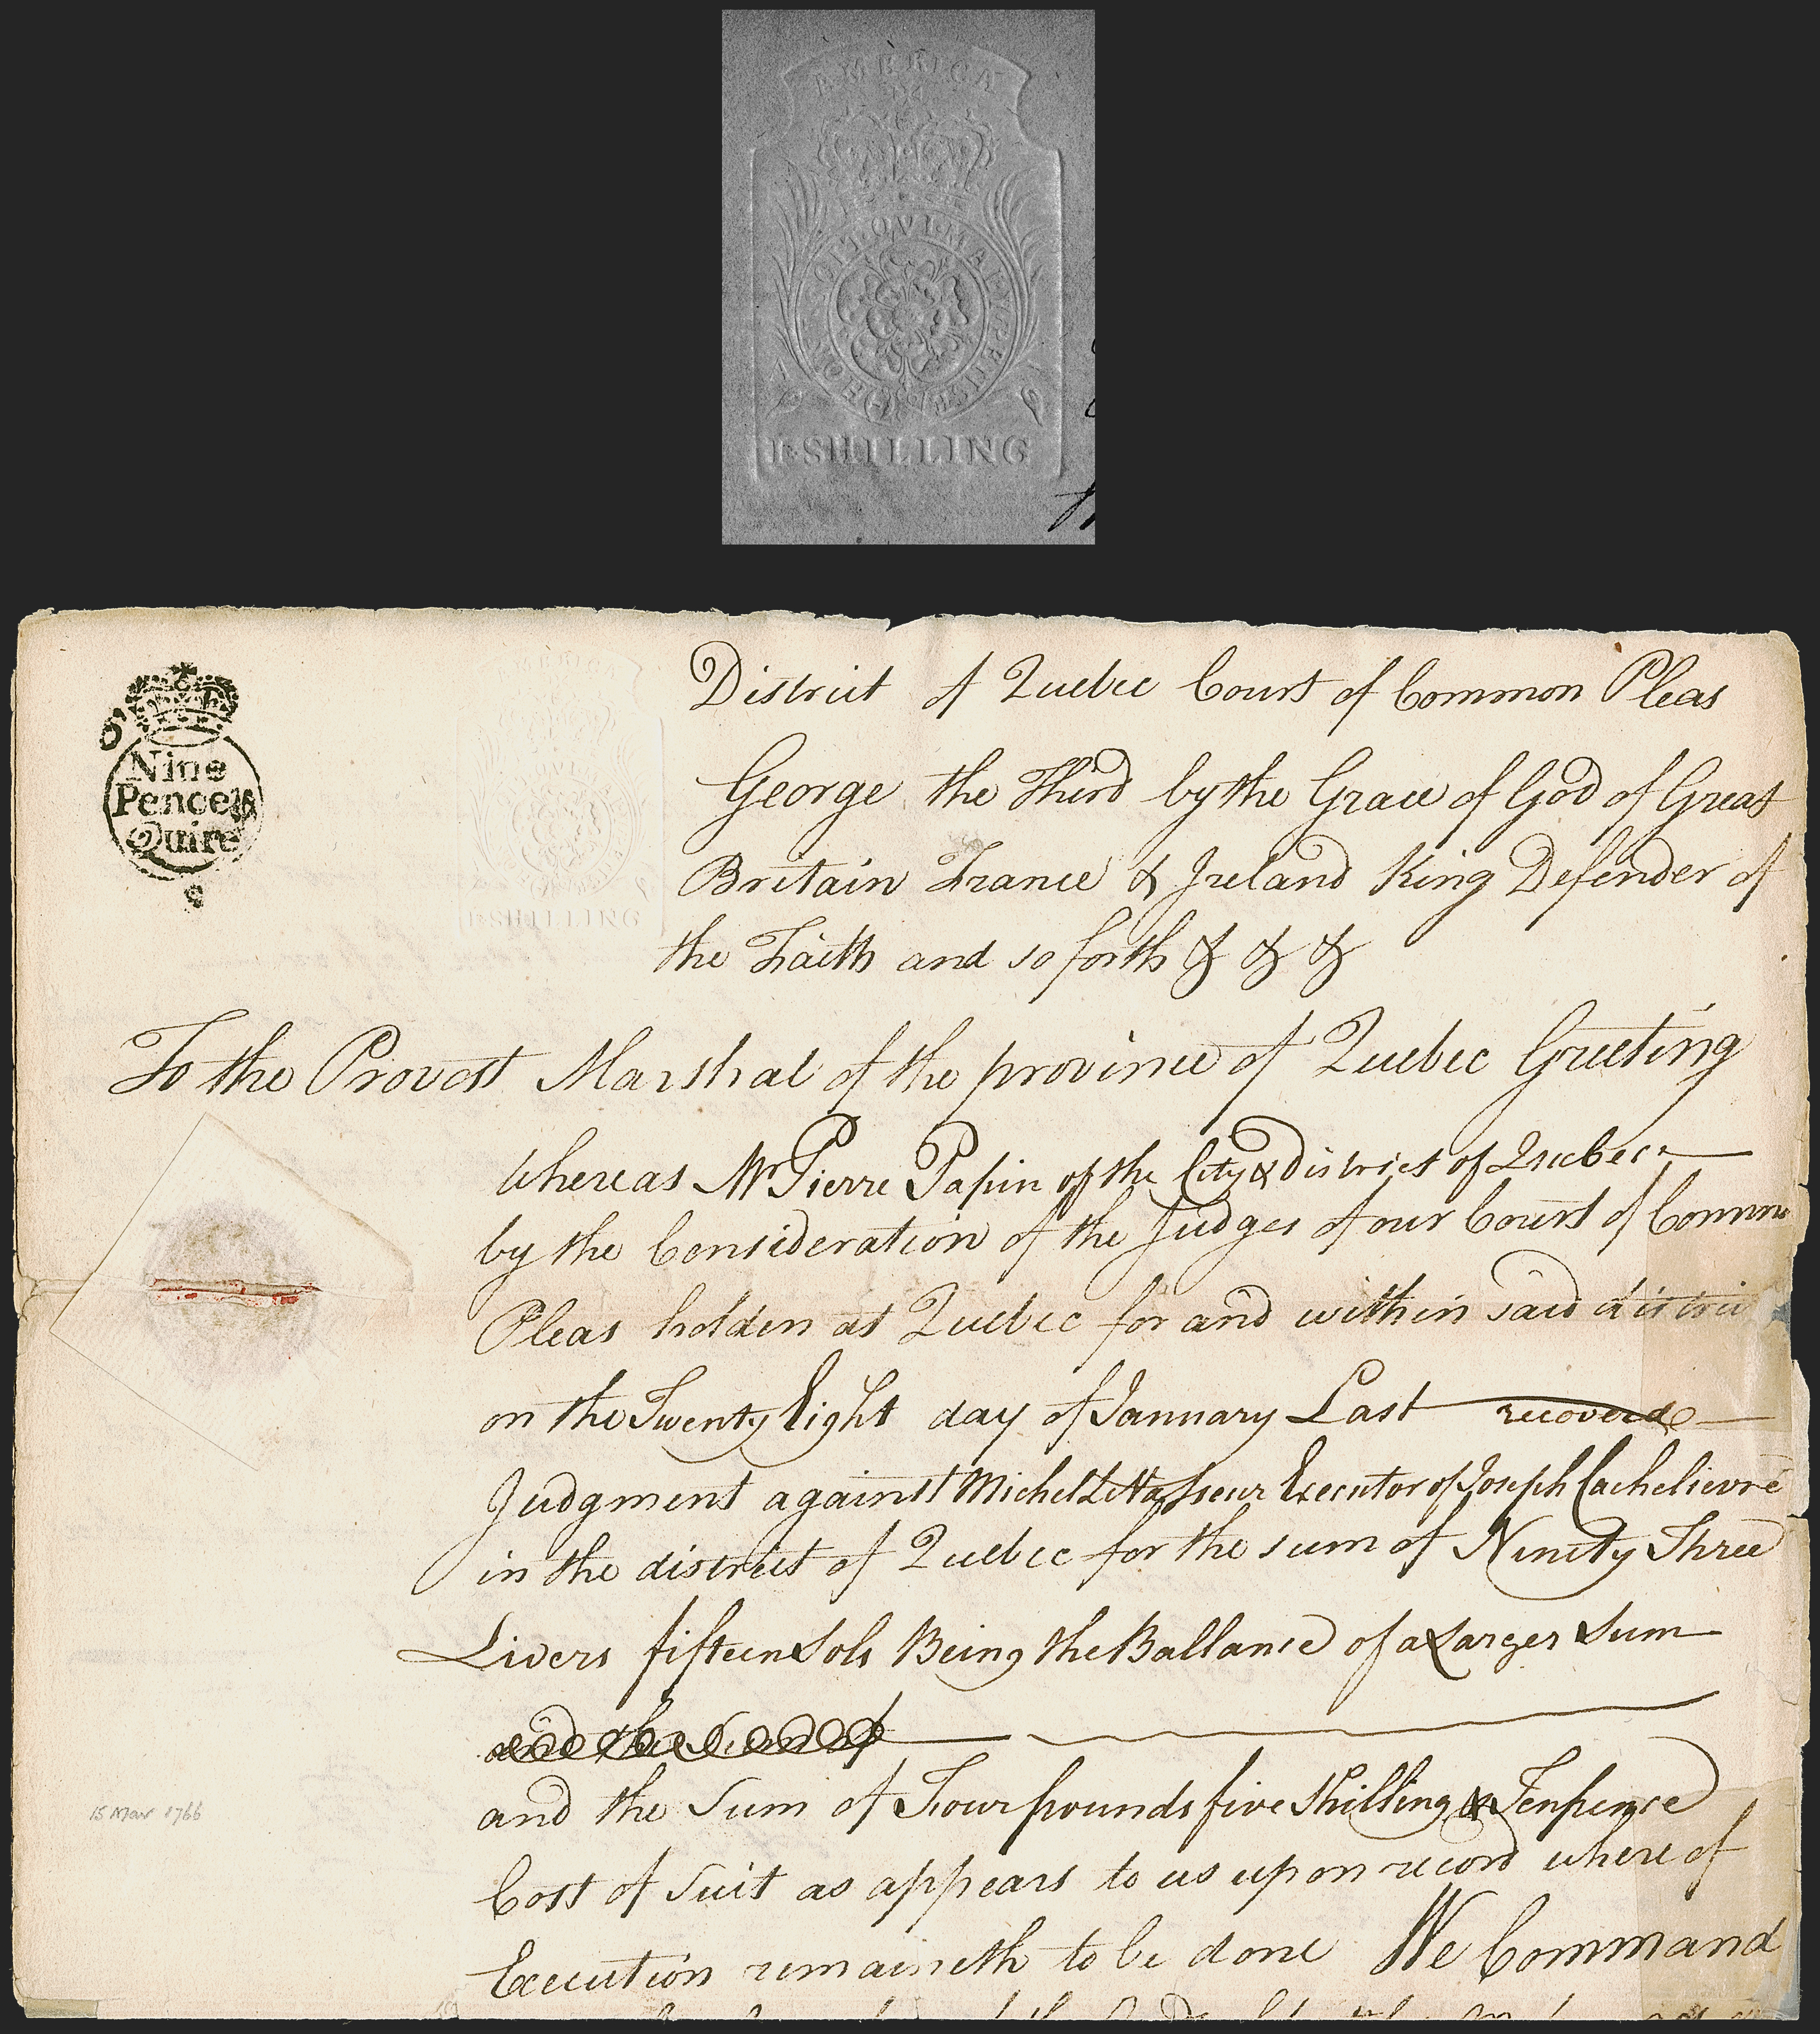 AMERICA
HONI SOIT QVI MAL Y PENSE
I·SHILLING
Nine
Pence ⅌
Quire
I·SHILLING
District of Quebec Court of Common Pleas
George the Third by the Grace of God of Great
Britain France & Ireland King Defender of
the Faith and so forth & & &
To the Provost Marshal of the province of Quebec Greeting
Whereas Mr Pierre Papin of the City & district of Quebec
by the Consideration of the Judges of our Court of Common
Pleas holden at Quebec for and within said district
on the Twenty Eight day of January Last recoverd
Judgment against Michel Executor of Joseph Cachelievre
in the district of Quebec for the sum of Ninety Three
Livers fifteen Sols Being the Ballance of a Larger Sum
and the Sum of
and the Sum of Four pounds five Shilling & Tenpence
Cost of Suit as appears to us upon record where of
Execution remaineth to be done We Command
15 Mar 1766